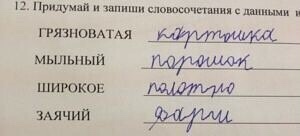 12. Придумай и запиши словосочетания с данными
ГРЯЗНОВАТАЯ картошка
МЫЛЬНЫЙ порошок
ШИРОКОЕ полотно
ЗАЯЧИЙ